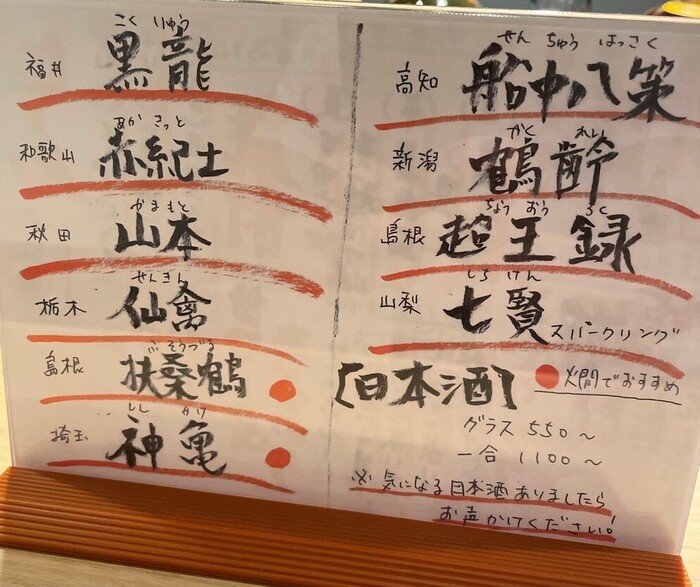 こく りゅう
福井 黒龍
あか きっと
和歌山 赤紀土
やまもと
秋田 山本
せんきん
栃木 仙禽
ふそうづる
島根 扶桑鶴
埼玉 神亀
せん ちゅう はっさく
高知 船中八策
かく れい
新潟 鶴齢
ちょう おう ろく
島根 超王録
しち けん
山梨 七賢 スパークリング
【日本酒】 燗でおすすめ
グラス 550～
一合 1100～
※ 気になる日本酒ありましたら
お声かけてください!